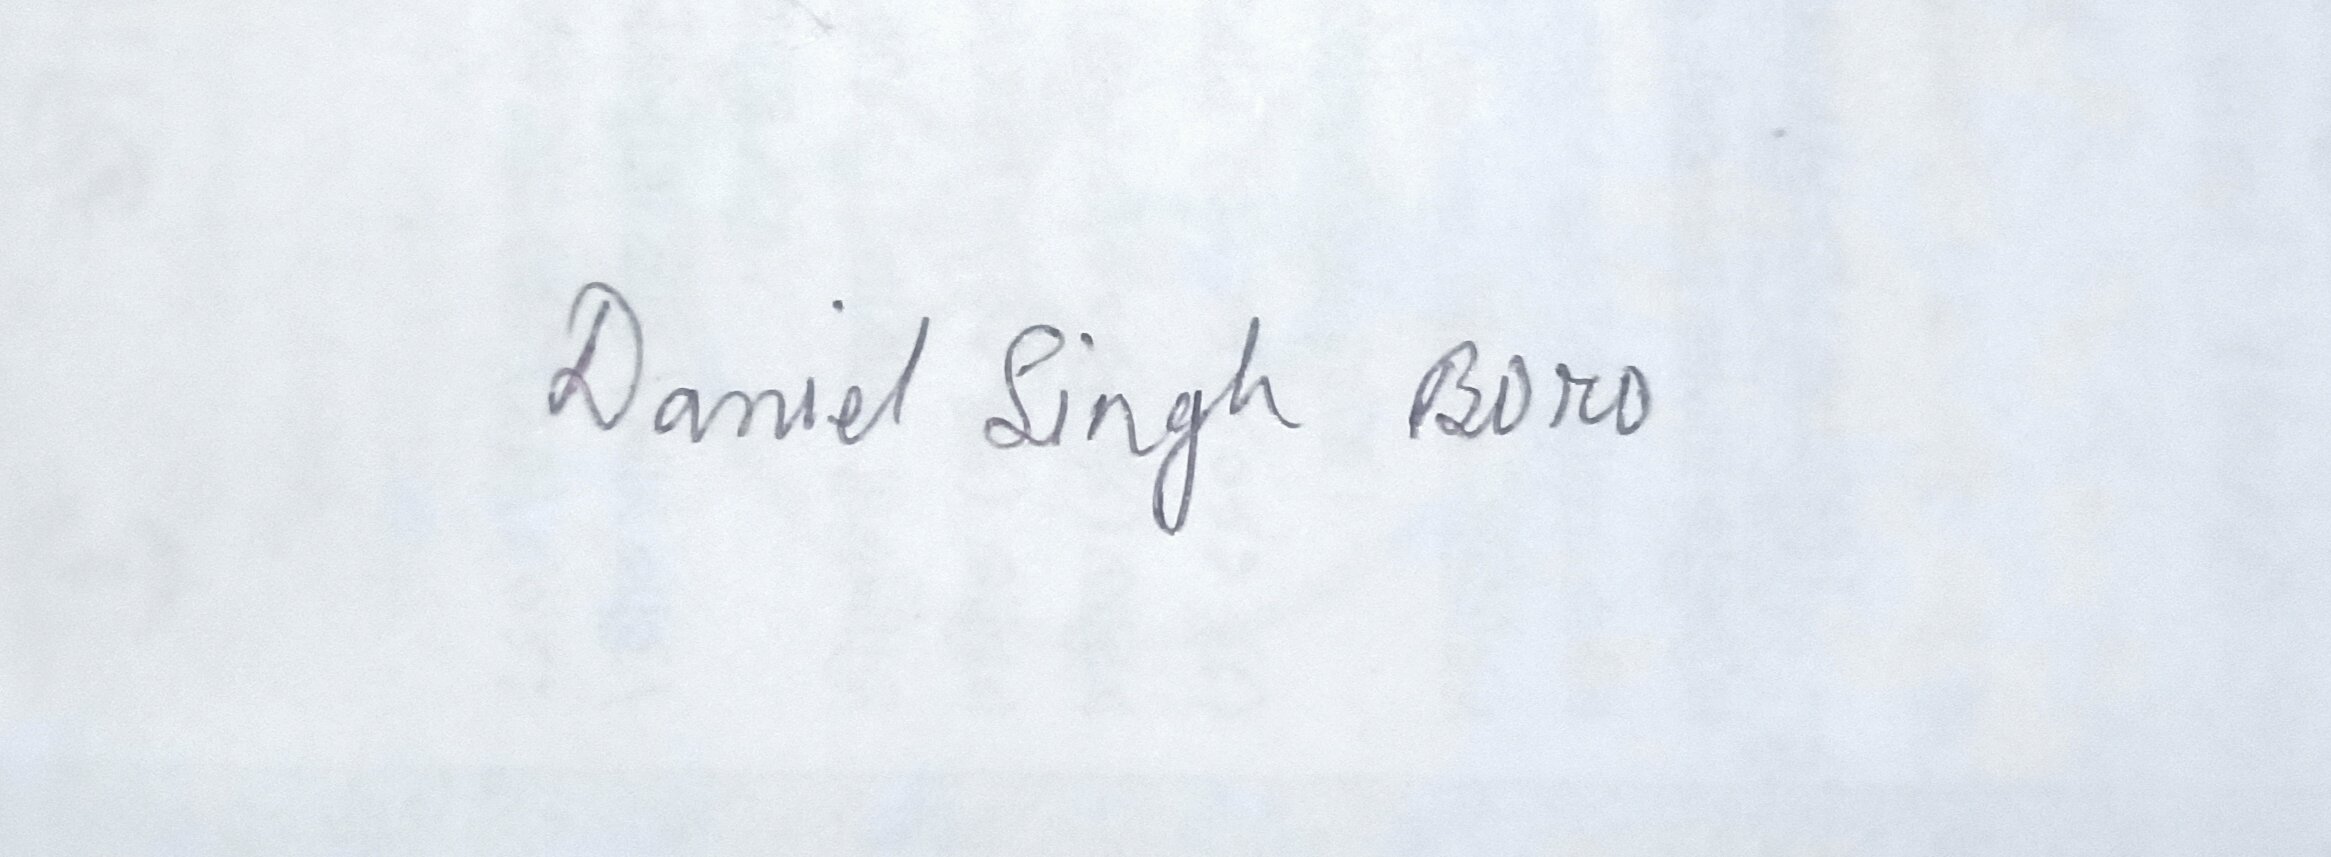 Daniel Singh Boro